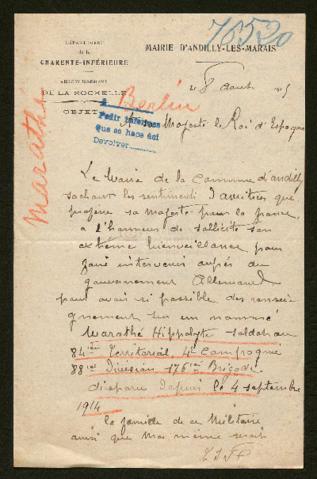 76520
DÉPARTEMENT
DE LA
CHARENTE-INFÉRIEURE
ARRONDISSEMENT
DE LA ROCHELLE
OBJET
MAIRIE D'ANDILLY-LES-MARAIS
8 Aout
A Berlin
Pedir informes
Que se hace aci
Devolver
Marathé
Majesté le Roi d'Espagne
Le Maire de la Commune d'andilly
sachant les sentiments d'amitiés que
professe sa Majesté pour la france,
a l'honneur de sollicité son
extrème bienveillance pour
faire intervenir auprès du
gouvernement Allemand
pour avoir si possible des rensei
gnement sur un nommé
Marathé Hippolyte soldat au
84ième Territorial, 4e Compagnie
88ie Division, 176ie Brigade
disparu depuis le 4 septembre
1914
la famille de ce Militaire
ainsi que moi même